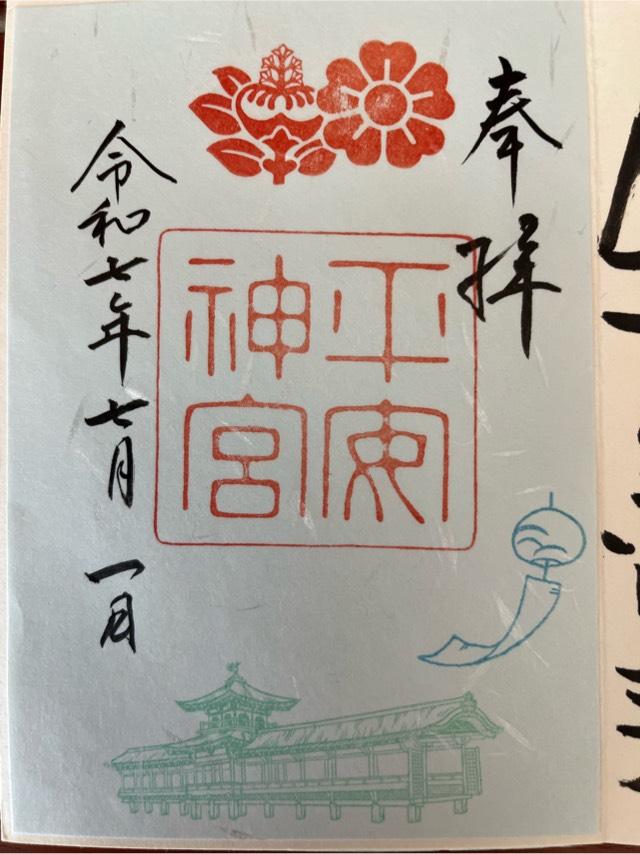 奉拝
平安
神宮
令和七年七月一日